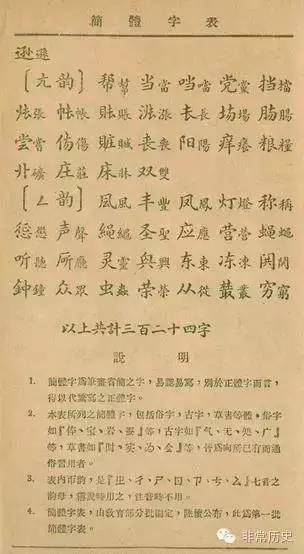 簡體字表
逊遜
〔ㄤ韵〕帮幫 当當 噹 党黨 挡擋
张張 帐帳 账賬 涨漲 长長 场場 肠腸
尝嘗 伤傷 赃贓 丧喪 阳陽 痒癢 粮糧
礦 庄莊 床牀 双雙
〔ㄥ韵〕凨風 丰豐 凤鳳 灯燈 称稱
惩懲 声聲 绳繩 圣聖 应應 营營 蝇蠅
听聽 廳 灵靈 興 东東 冻凍
鐘 众眾 虫蟲 荣榮 从從 叢 穷窮
以上共計三百二十四字
說 明
1. 簡體字爲筆畫省簡之字，易認易寫，別於正體字而言，
得以代繁寫之正體字。
2. 本表所列之簡體字，包括俗字，古字，草書等體。俗字
如『体、宝、岩、蚕』等，古字如『气、无、处、广』
等，草書如『时、实、为、会』等，皆爲已有而通
俗習用者。
3. 表內的，是『ㄓ、ㄔ、ㄕ、ㄖ、ㄗ、ㄘ、ㄙ』七音之
韵母，需說時用之，注音時不用。
4. 簡體字表，由教育部分批制定，陸續公布，此爲第一批
簡體字表。
非常历史